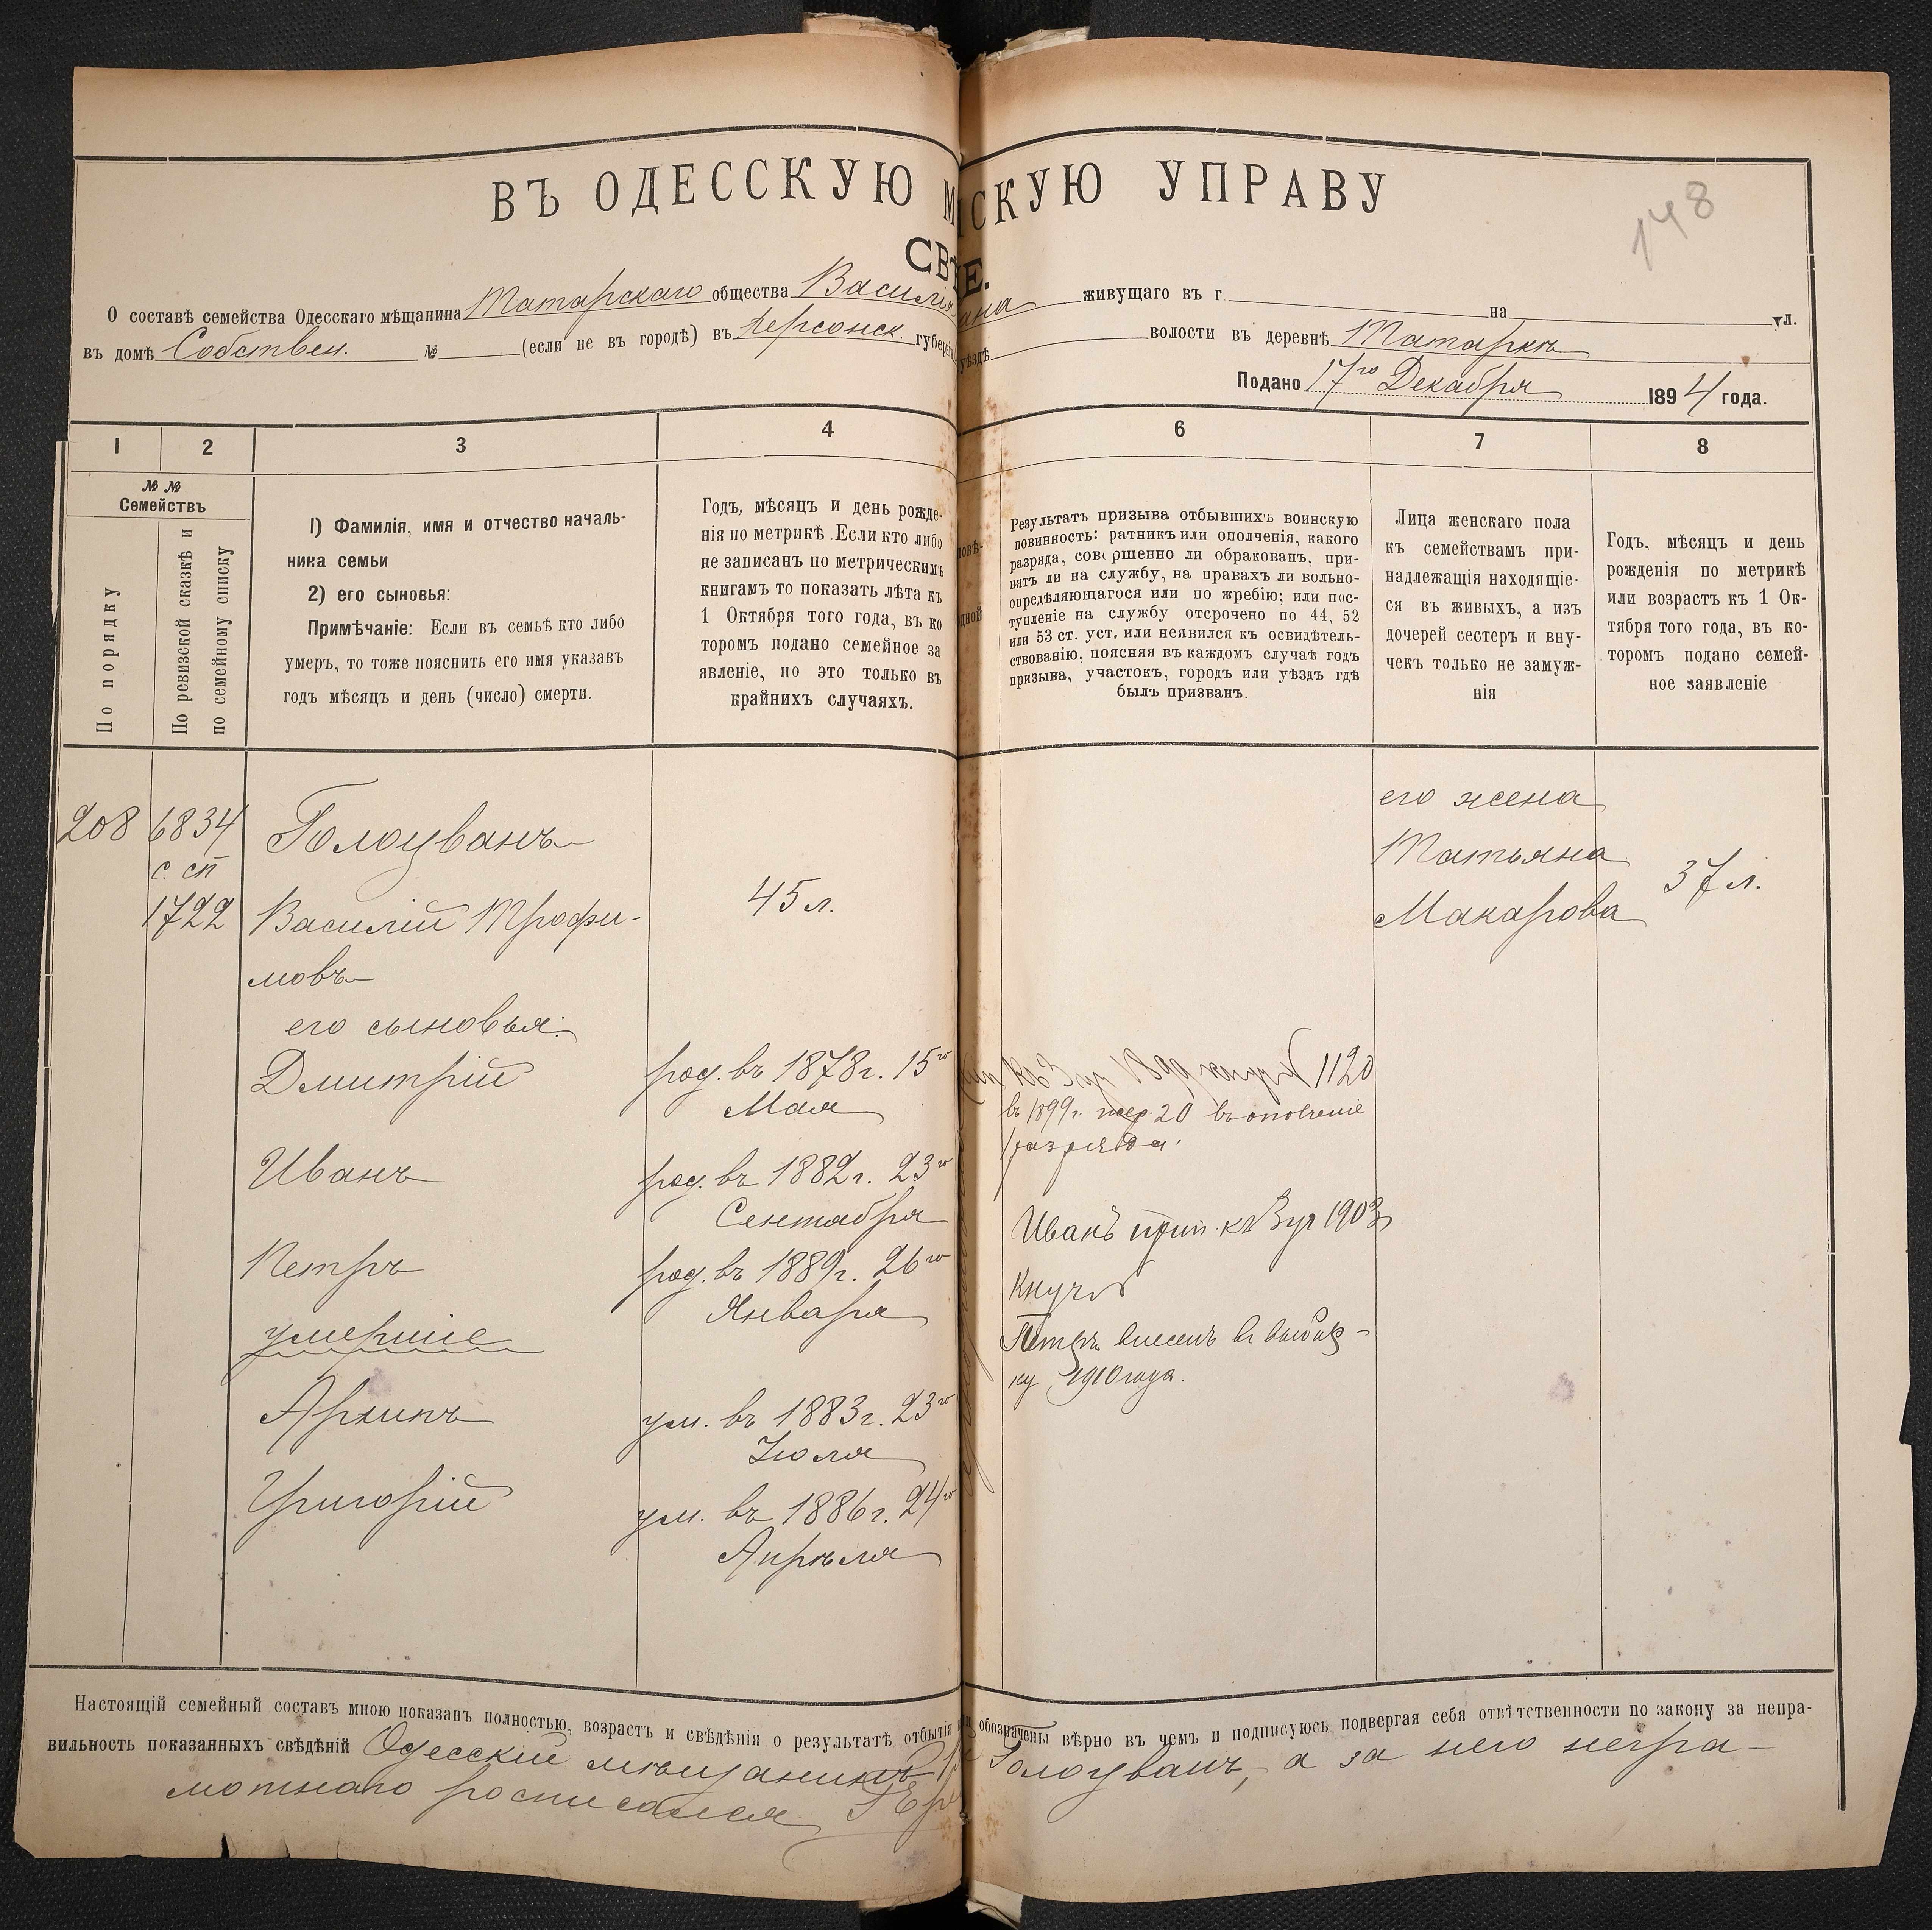 ВЪ ОДЕССКУЮ М
СКУЮ УПРАВУ
148
СВѢ
Е.
О составѣ семейства Одесскаго мѣщанина Татарскаго общества Василія
ана живущаго въ г. на ул.
въ домѣ Собствен. № (если не въ городѣ) въ Херсонск. губерніи
уѣздѣ волости въ деревнѣ Татаркѣ
Подано 17го Декабря 1894 года.
1 2 3 4 6 7 8
№ №
Семействъ
По порядку
По ревизской сказкѣ и
по семейному списку
1) Фамилія, имя и отчество началь-
ника семьи
2) его сыновья:
Примѣчаніе: Если въ семьѣ кто либо
умеръ, то тоже пояснить его имя указавъ
годъ мѣсяцъ и день (число) смерти.
Годъ, мѣсяцъ и день рожде-
нія по метрикѣ. Если кто либо
не записанъ по метрическимъ
книгамъ то показать лѣта къ
1 Октября того года, въ ко
торомъ подано семейное за
явленіе, но это только въ
крайнихъ случаяхъ.
Результатъ призыва отбывшихъ воинскую
повинность: ратникъ или ополченія, какого
разряда, совершенно ли обракованъ, при-
нятъ ли на службу, на правахъ ли вольно-
опредѣляющагося или по жребію; или пос-
тупленіе на службу отсрочено по 44, 52
или 53 ст. уст. или неявился къ освидѣтель-
ствованію, поясняя въ каждомъ случаѣ годъ
призыва, участокъ, городъ или уѣздъ гдѣ
былъ призванъ.
Лица женскаго пола
къ семействамъ при-
надлежащія находящіе-
ся въ живыхъ, а изъ
дочерей сестеръ и вну-
чекъ только не замуж-
нія
Годъ, мѣсяцъ и день
рожденія по метрикѣ
или возрастъ къ 1 Ок-
тября того года, въ ко-
торомъ подано семей-
ное заявленіе
208 6834
с. сп
1722
Голоцванъ
Василій Трофи-
мовъ
45 л.
его жена
Татьяна
Макарова
37 л.
его сыновья:
Дмитрій род. въ 1878г. 15го
Мая
1120
въ 1899г. жер. 20 въ ополченіе
разряда.
Иванъ род. въ 1882г. 23го
Сентября
Иванъ прип. къ 3 уч 1903
Петръ род. въ 1889г. 26го
Января
Петръ внесенъ въ выбор-
ку 1910 года.
умершіе
Архипъ ум. въ 1883г. 23го
Іюля
Григорій ум. въ 1886г. 24го
Апрѣля
Настоящій семейный составъ мною показанъ полностью, возрастъ и свѣдѣнія о результатѣ отбытія
обозначены вѣрно въ чемъ и подписуюсь подвергая себя отвѣтственности по закону за непра-
вильность показанныхъ свѣдѣній Одесскій мѣщанинъ
Голоцванъ, а за него негра-
мотнаго росписался